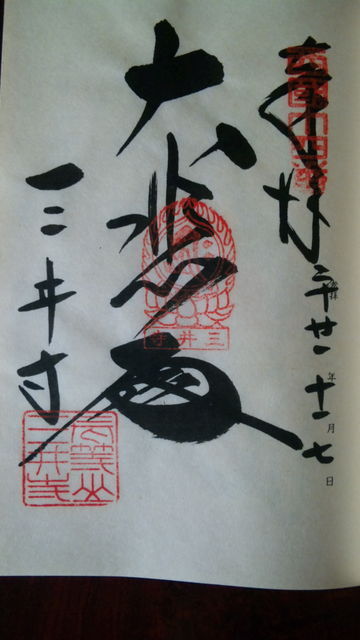 奉拝
西国十四番
廿一年十一月七日
大悲
三井寺
三井寺
長等山
三井寺